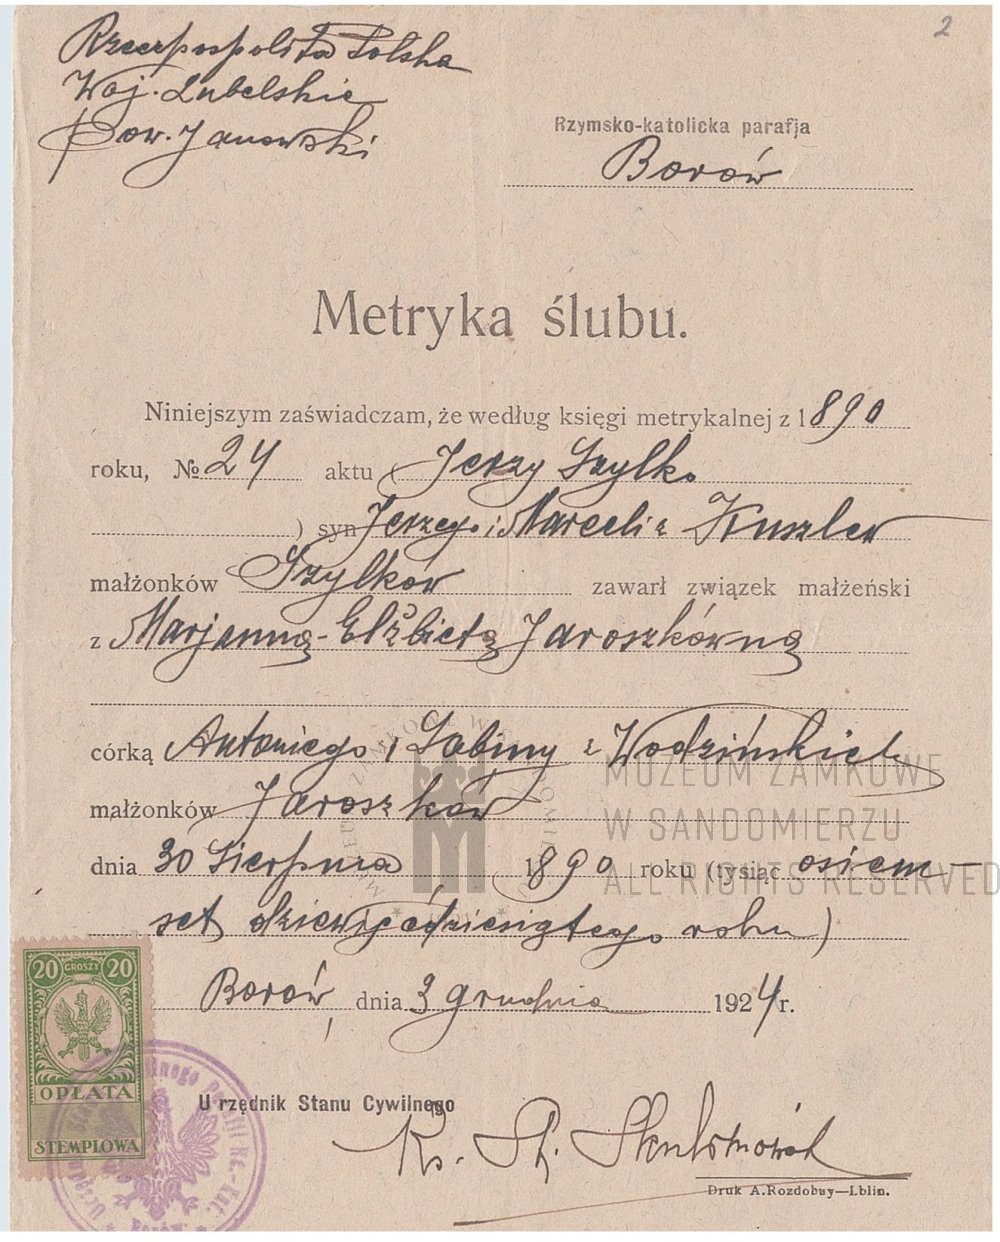 2
Rzeczpospolita Polska
Woj. Lubelskie
Pow. Janowski
Rzymsko-katolicka parafja
Borów
Metryka ślubu.
Niniejszym zaświadczam, że według księgi metrykalnej z 1890
roku, № 24 aktu (Jerzy Szylko
) syn Jerzego i Marceli z Kuszlów
małżonków Szylków zawarł związek małżeński
z Marjanną-Elżbietą Jaroszkówną
córką Antoniego i Sabiny z Wodzińskich
małżonków Jaroszków
dnia 30 Sierpnia 1890 roku (tysiąc osiem-
set dziewięćdziesiątego roku)
Borów, dnia 3 grudnia 1924 r.
Urzędnik Stanu Cywilnego
Ks. St.
Druk A. Rozdobuy—Lblin.
20 GROSZY 20
OPŁATA
STEMPLOWA
MUZEUM ZAMKOWE
W SANDOMIERZU
ALL RIGHTS RESERVED